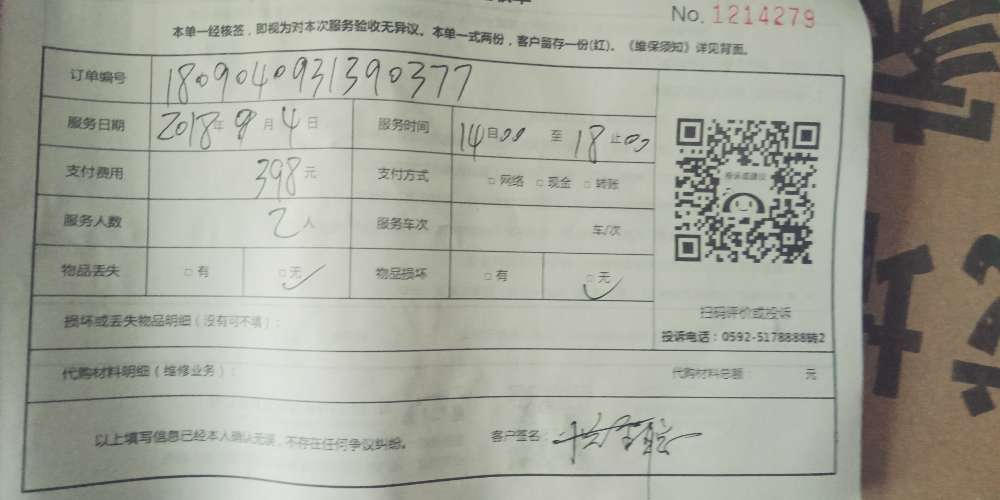 No. 1214279
本单一经核签，即视为对本次服务验收无异议。本单一式两份，客户留存一份(红)。《维保须知》详见背面。
订单编号 1809040931390377
服务日期 2018年9月4日 服务时间 14目00 至 18止00
支付费用 398元 支付方式 □ 网络 □ 现金 □ 转账
投诉或建议
服务人数 2人 服务车次 车/次
物品丢失 □ 有 □ 无 ✓ 物品损坏 □ 有 □ 无 ✓
扫码评价或投诉
损坏或丢失物品明细（没有可不填）：
投诉电话：0592-5178888转2
代购材料明细（维修业务）： 代购材料总额： 元
以上填写信息已经本人确认无误，不存在任何争议纠纷。 客户签名：